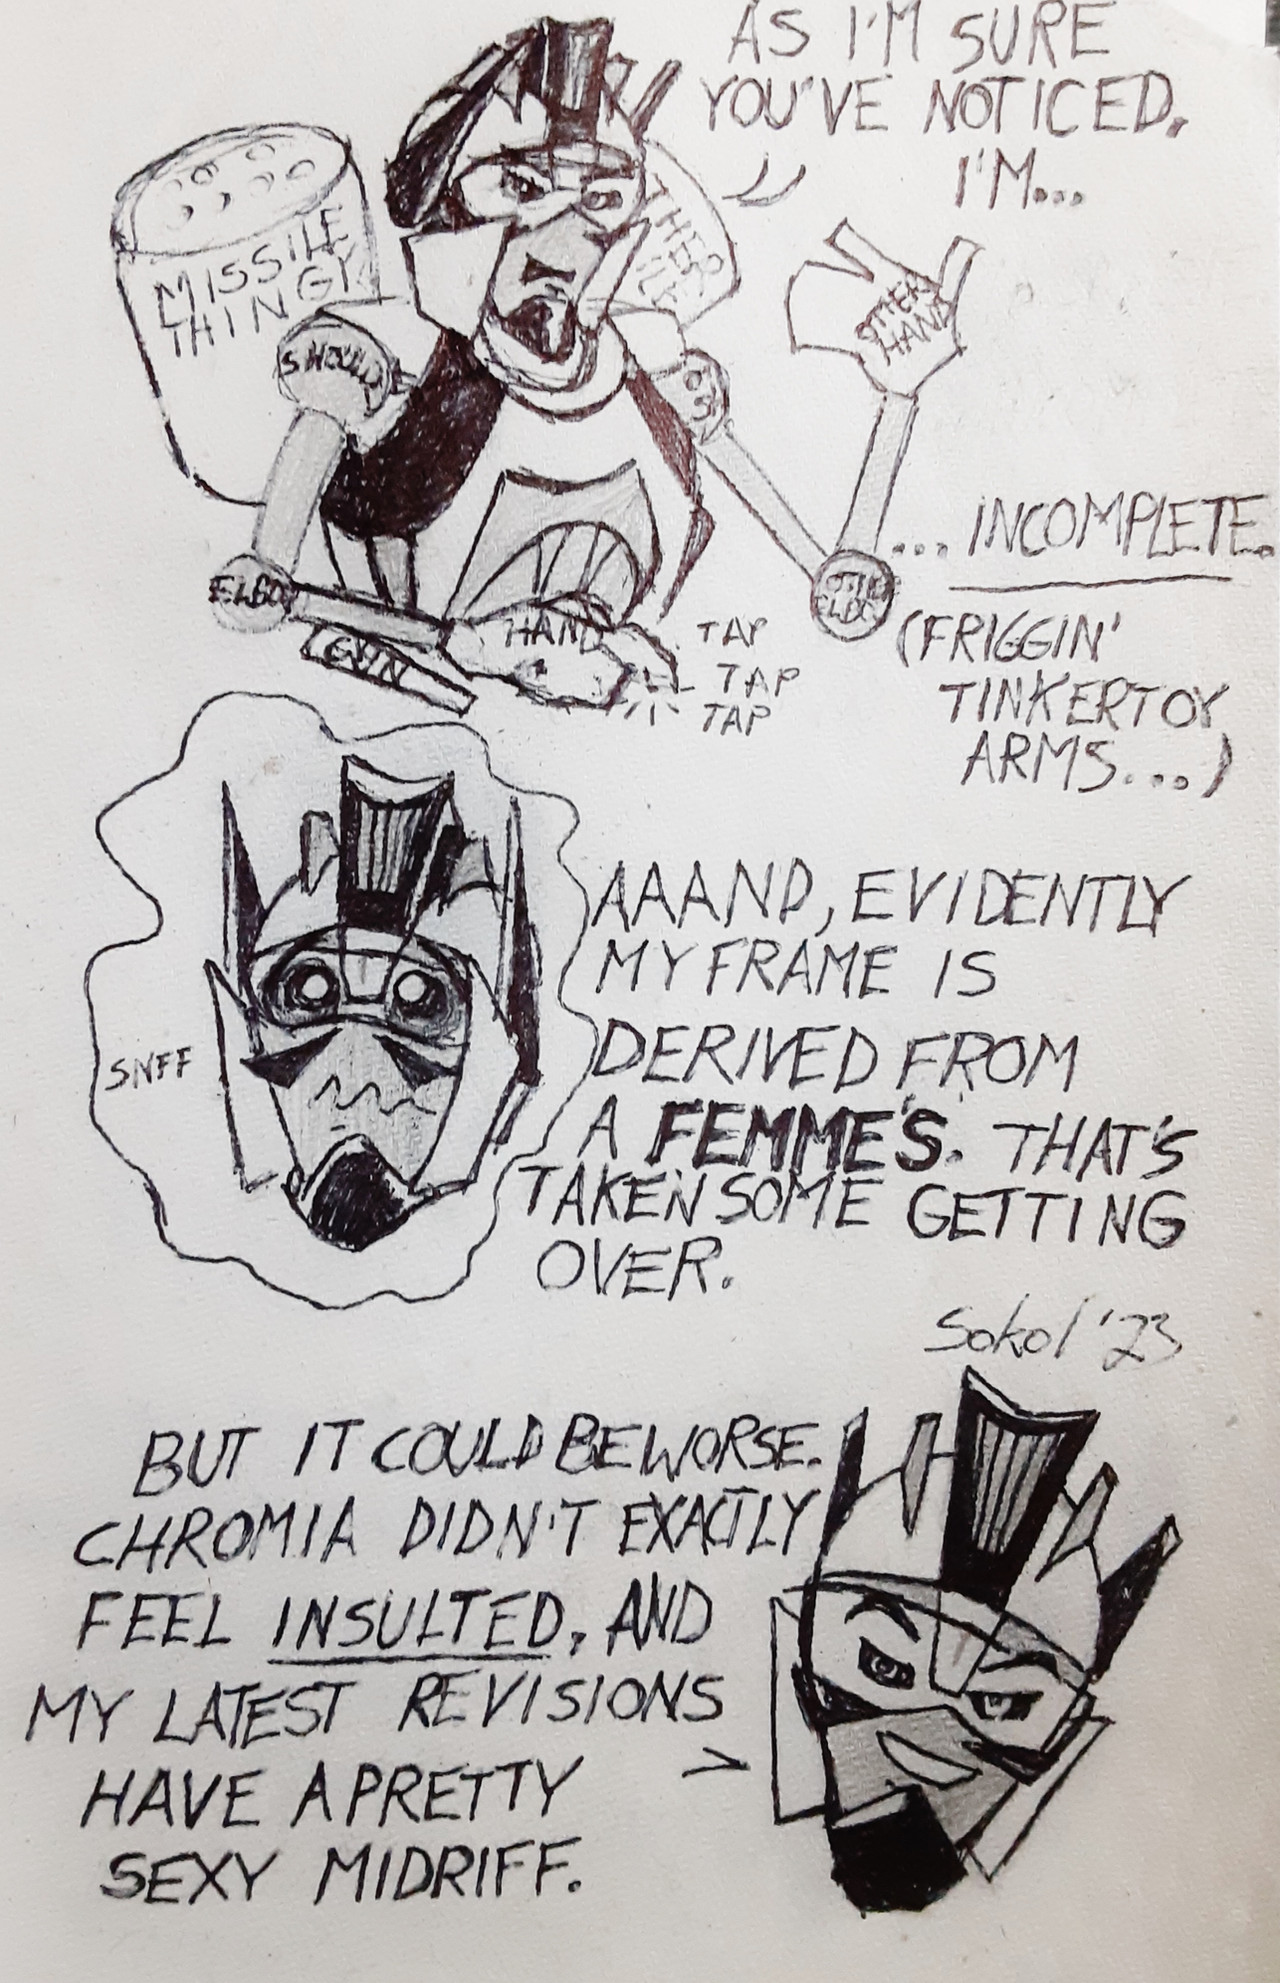 AS I'M SURE
YOU'VE NOTICED.
I'M...
MISSILE
THINGY
OTHER
HAND
ELBO
OTHER
ELBO
HAND
GUN
TAP
TAP
TAP
... INCOMPLETE.
(FRIGGIN'
TINKERTOY
ARMS...)
SNFF
AAAND, EVIDENTLY
MY FRAME IS
DERIVED FROM
A FEMME'S. THAT'S
TAKEN SOME GETTING
OVER.
Sokol '23
BUT IT COULD BE WORSE.
CHROMIA DIDN'T EXACTLY
FEEL INSULTED, AND
MY LATEST REVISIONS
HAVE A PRETTY
SEXY MIDRIFF.